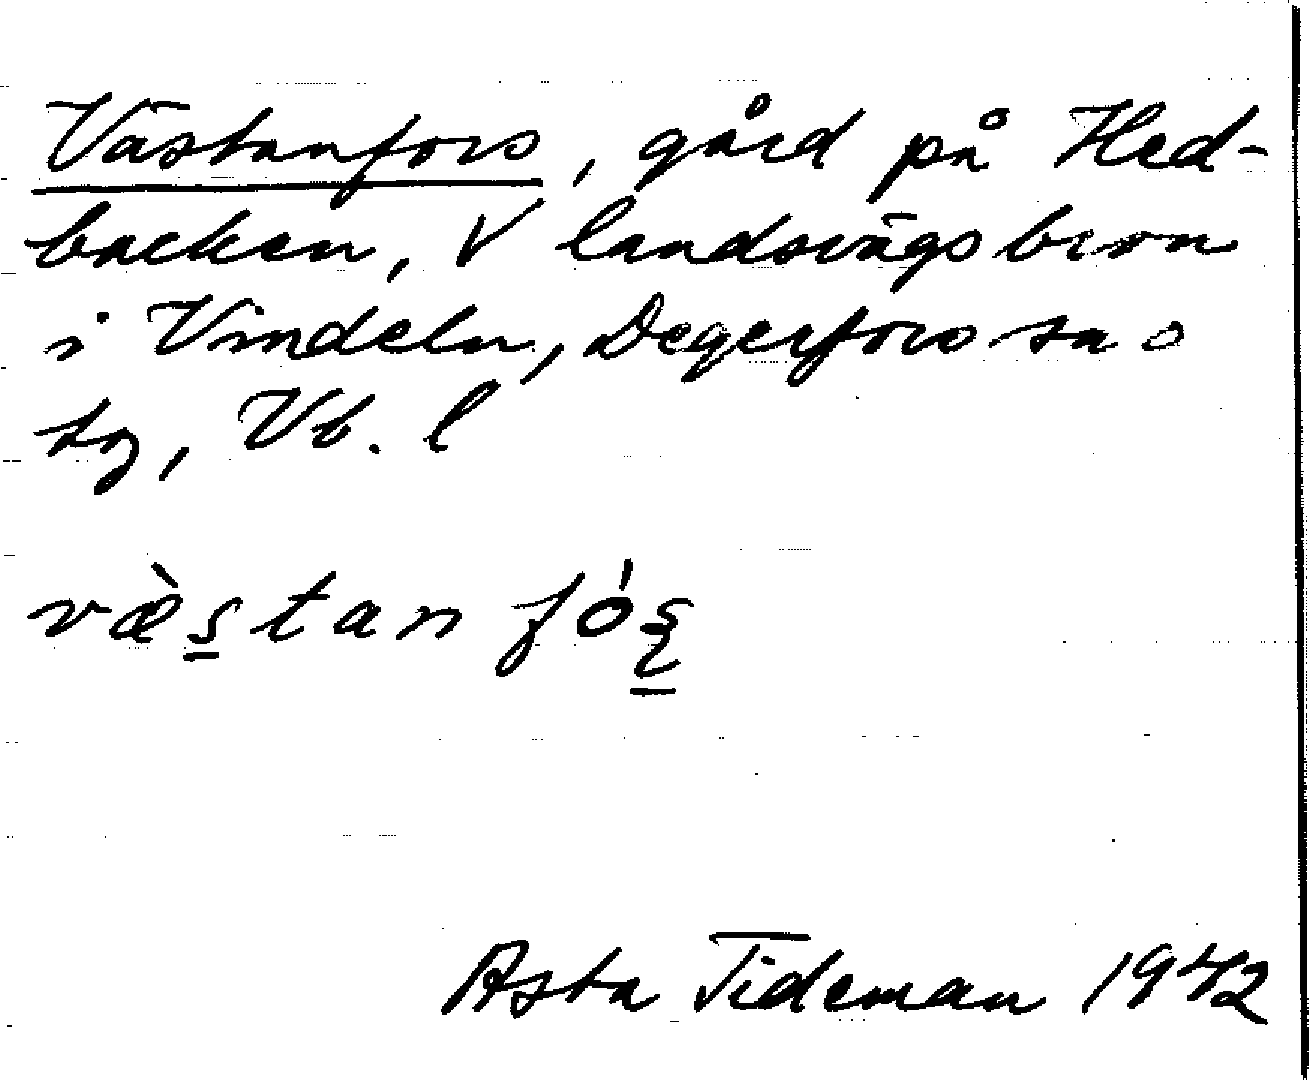 Västanfors, gård på Hed-
backen, V landsvägsbron
i Vindeln, Degerfors sn o
tg, Vb. l
væ̀stan fóꞩ
Asta Tideman 1942